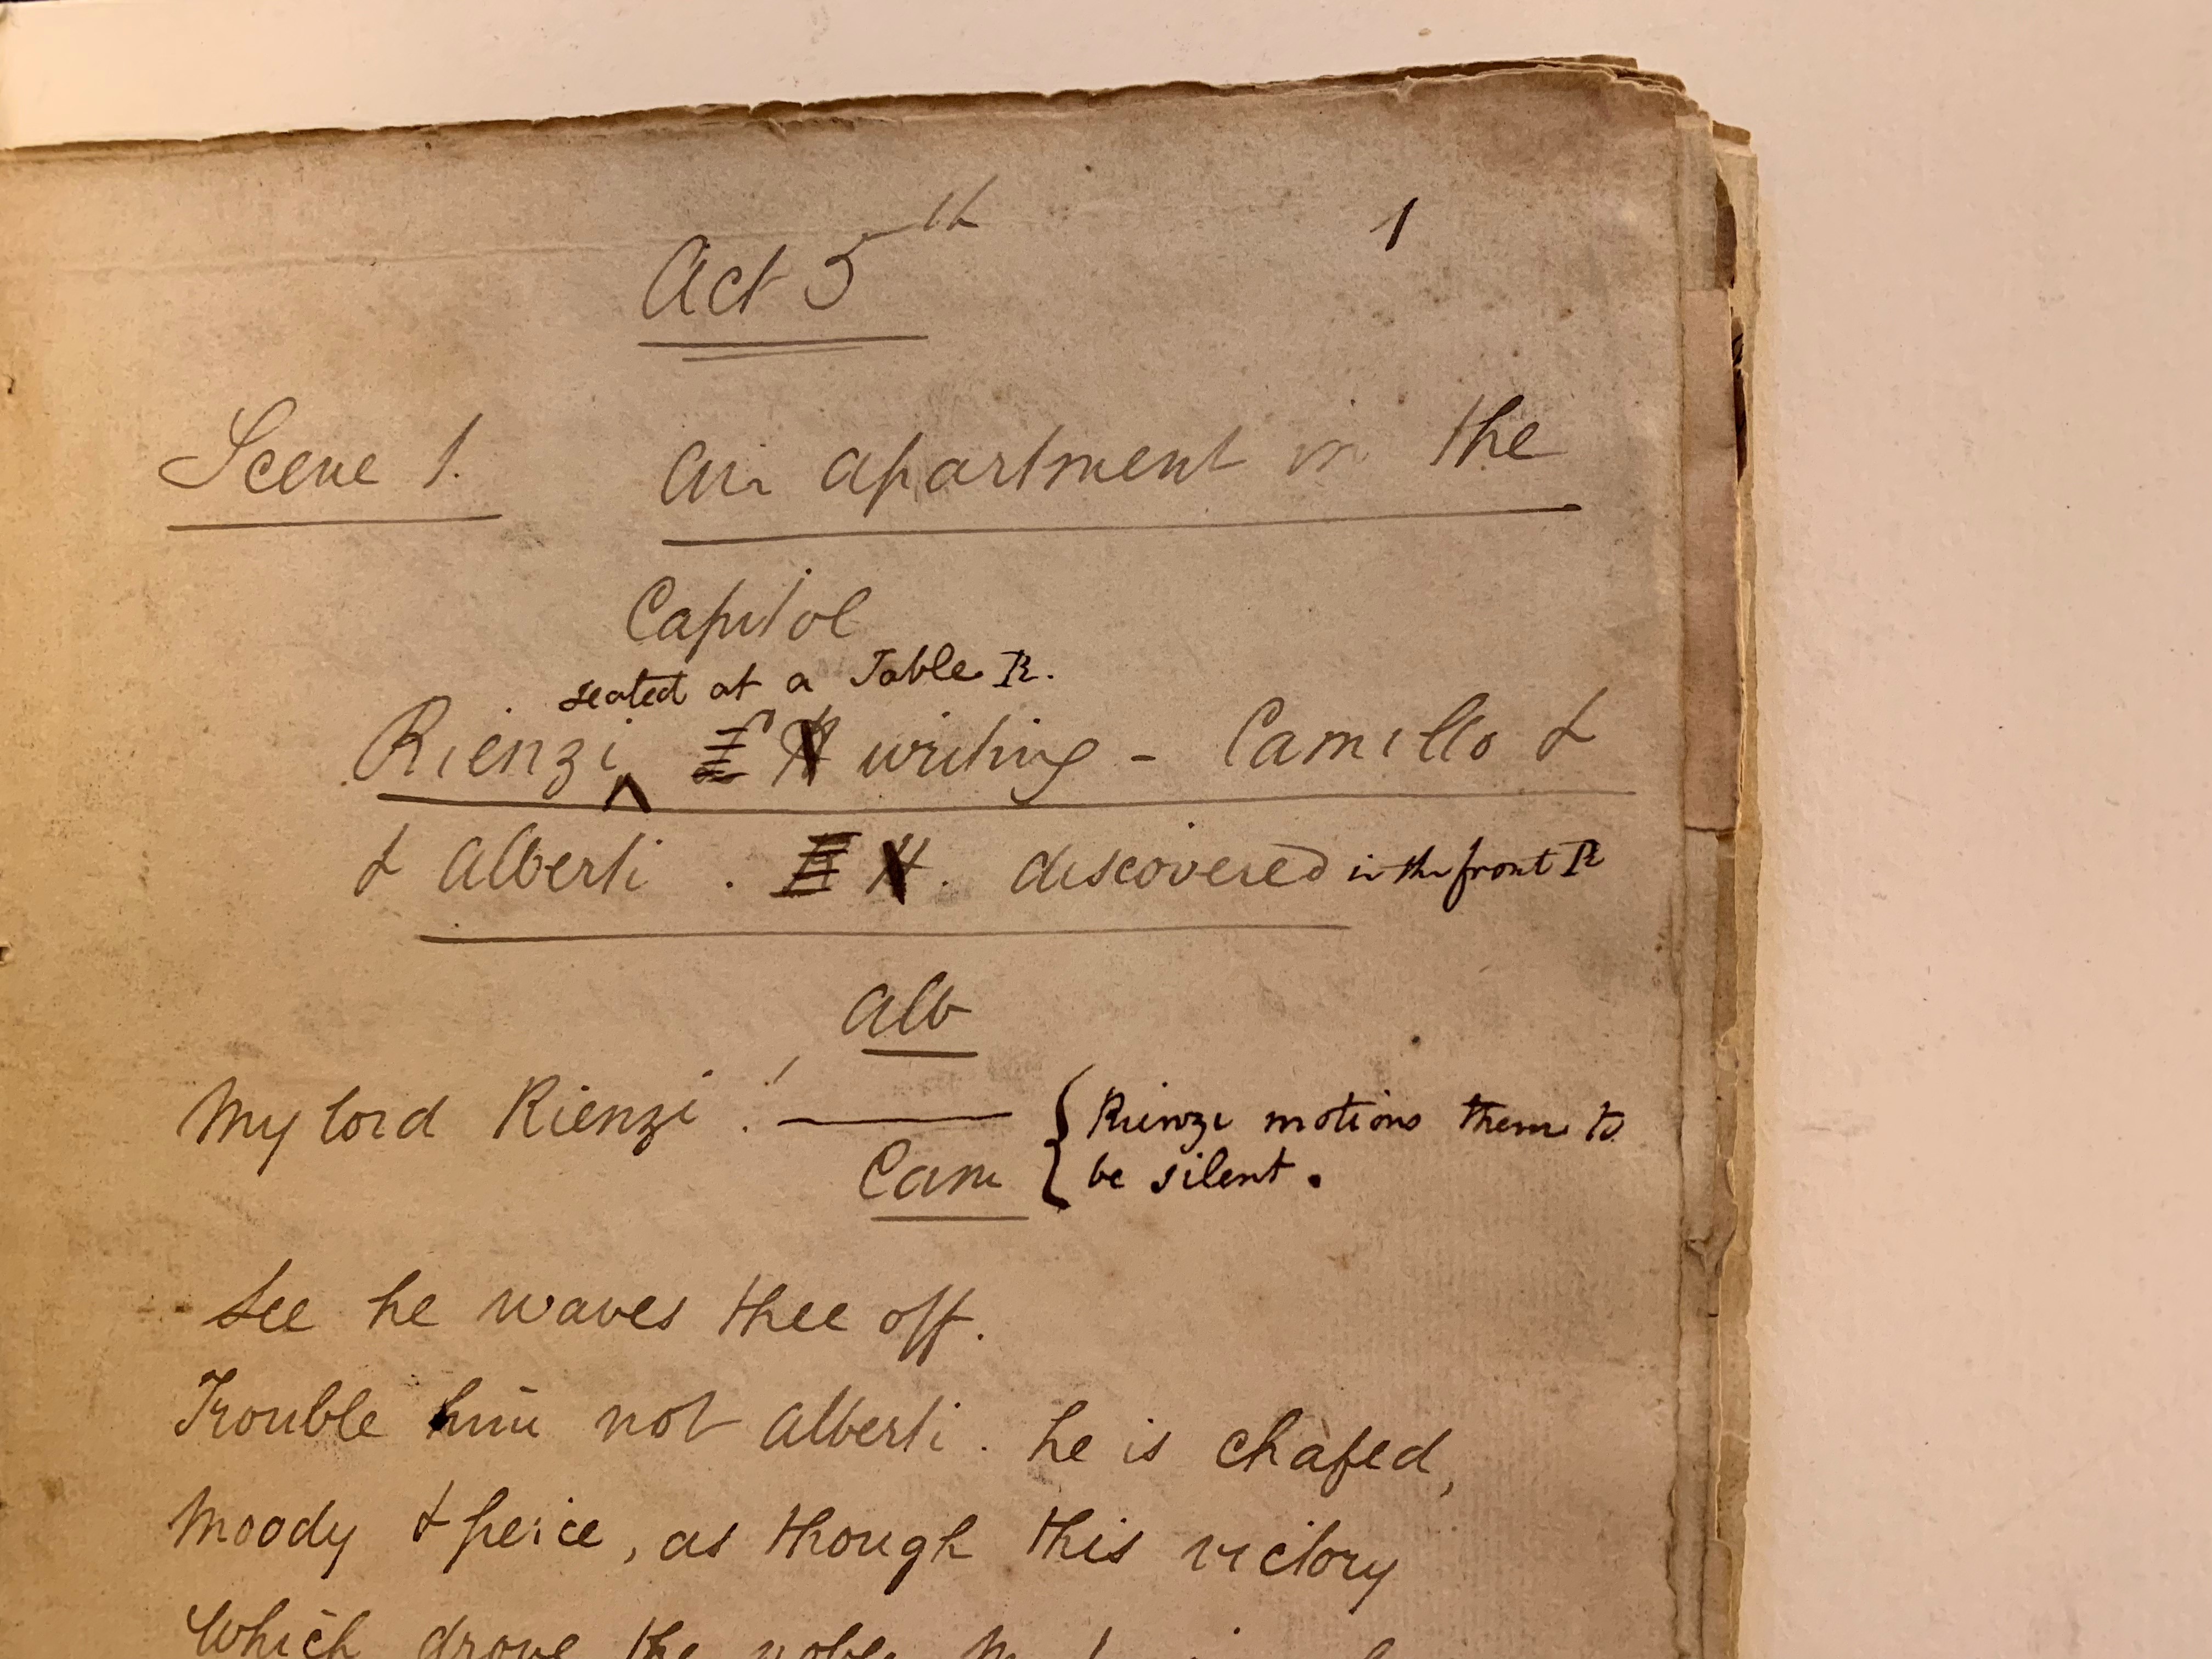 Act 5th 1
Scene 1. An apartment in the
Capitol
seated at a Table R.
Rienzi writing - Camillo &
& Alberti . discovered in the front R
Alb
My lord Rienzi !
Cam { Rienzi motions them to
be silent.
See he waves thee off.
Trouble him not Alberti. he is chafed,
Moody & feirce, as though this victory
Which drove the noble